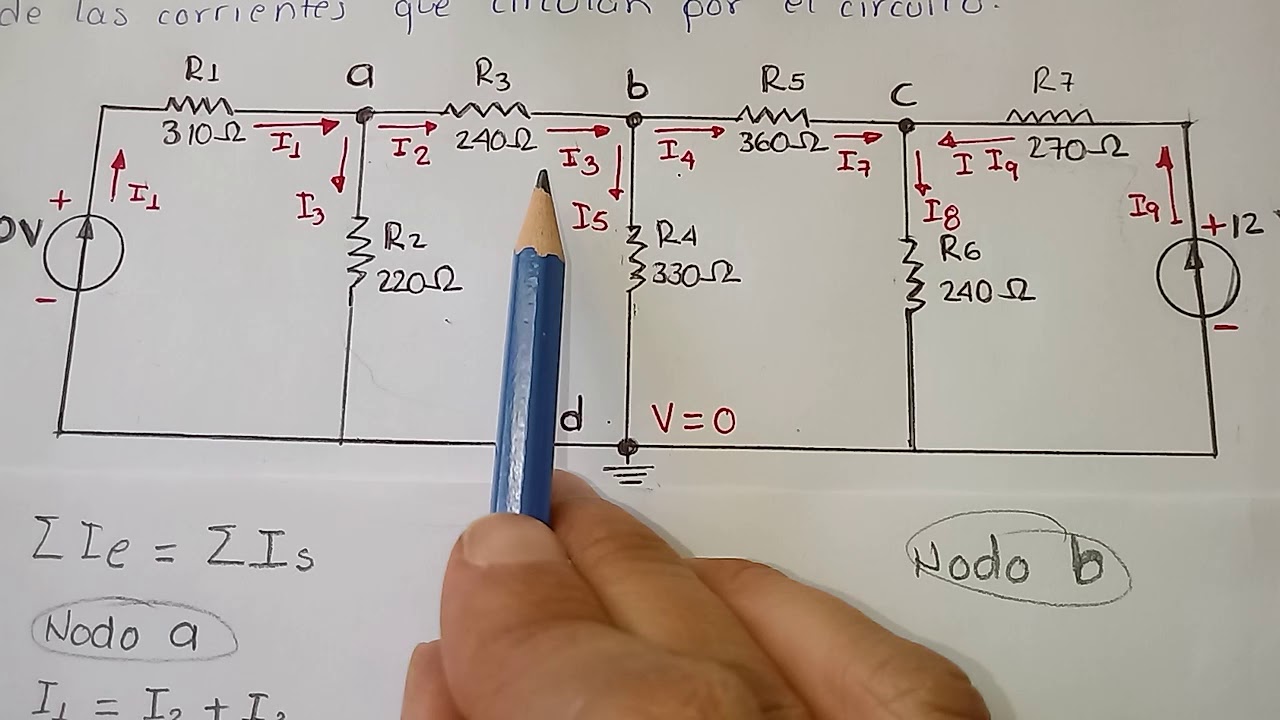 de las corrientes que circulan por el circuito.
R1 a R3 b R5 c R7
310Ω I1 I2 240Ω I3 I4 360Ω I7 I I9 270Ω
+ I1 I3 R2 220Ω I5 R4 330Ω I8 R6 240Ω I9 + 12
0V
- -
d V=0
ΣIe = ΣIs
Nodo b
Nodo a
I1 = I2 + I3